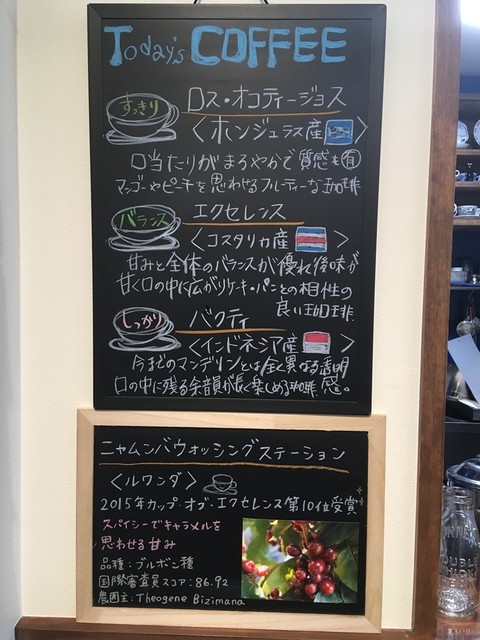 Today's COFFEE
すっきり
ロス・オコティージョス
＜ホンジュラス産＞
口当たりがまろやかで質感も有
マンゴーやピーチを思わせるフルーティーな珈琲
バランス
エクセレンス
＜コスタリカ産＞
甘みと全体のバランスが優れ後味が
甘く口の中に広がりケーキ・パンとの相性の
良い珈琲
しっかり
バクティ
＜インドネシア産＞
今までのマンデリンとは全く異なる透明
感。
口の中に残る余韻が長く楽しめる珈琲
ニャムンバウォッシングステーション
＜ルワンダ＞
2015年カップ・オブ・エクセレンス第10位受賞
スパイシーでキャラメルを
思わせる甘み
品種：ブルボン種
国際審査員スコア：86.92
農園主：Theogene Bizimana